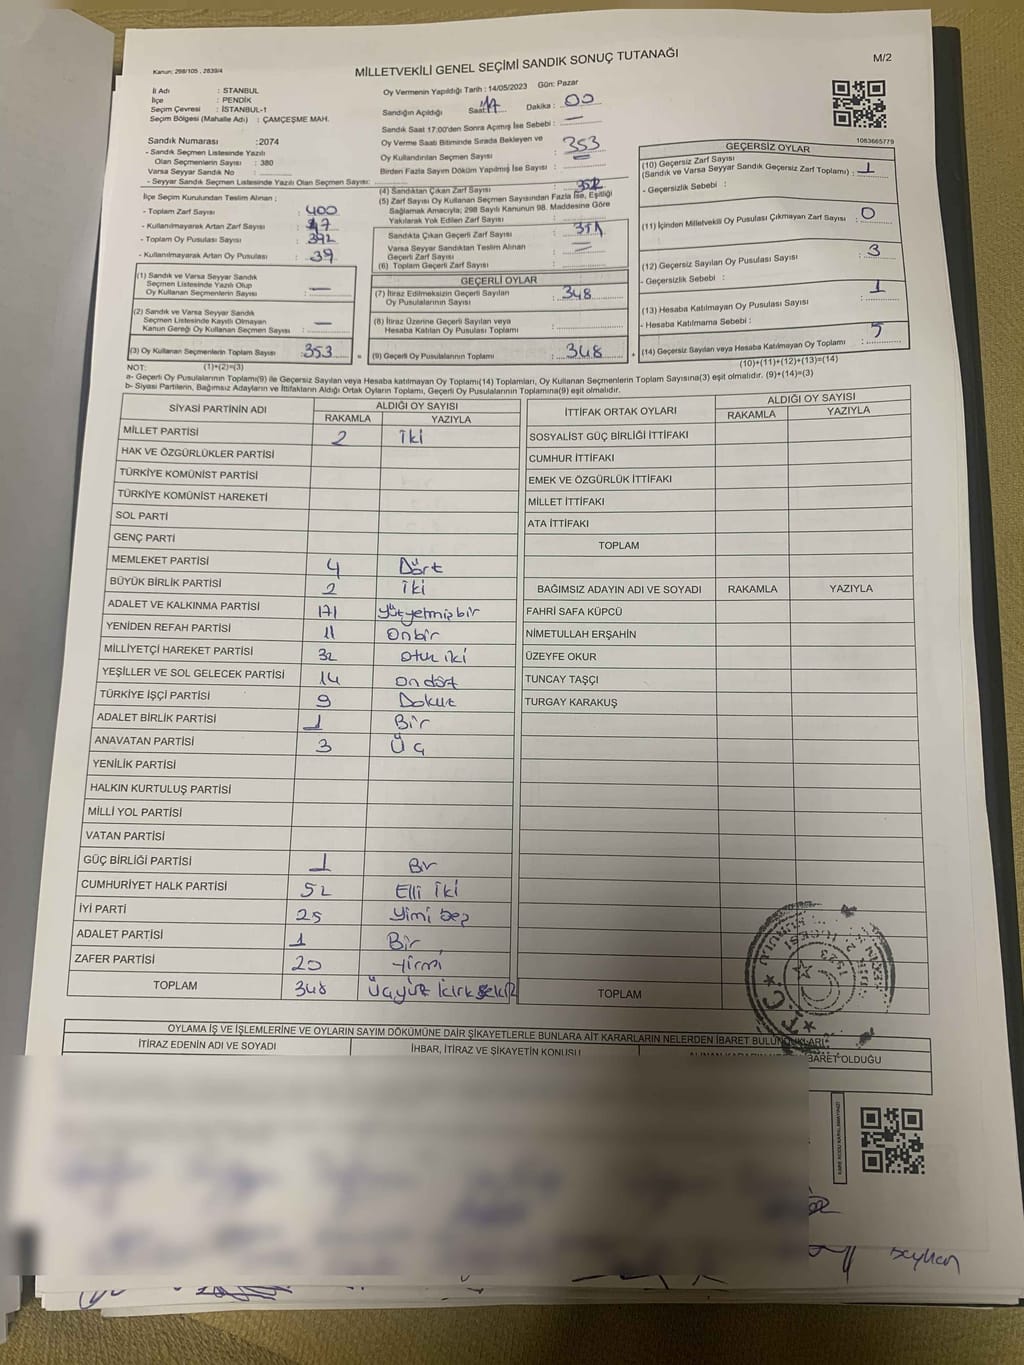 Kanun: 298/105 , 2839/4
MİLLETVEKİLİ GENEL SEÇİMİ SANDIK SONUÇ TUTANAĞI
M/2
İl Adı : STANBUL
İlçe : PENDİK
Seçim Çevresi : İSTANBUL-1
Seçim Bölgesi (Mahalle Adı) : ÇAMÇEŞME MAH.
Sandık Numarası :2074
- Sandık Seçmen Listesinde Yazılı
Olan Seçmenlerin Sayısı : 380
Varsa Seyyar Sandık No :
- Seyyar Sandık Seçmen Listesinde Yazılı Olan Seçmen Sayısı:
İlçe Seçim Kurulundan Teslim Alınan ;
- Toplam Zarf Sayısı : 400
- Kullanılmayarak Artan Zarf Sayısı : 47
- Toplam Oy Pusulası Sayısı : 392
- Kullanılmayarak Artan Oy Pusulası : 39
(1) Sandık ve Varsa Seyyar Sandık
Seçmen Listesinde Yazılı Olup
Oy Kullanan Seçmenlerin Sayısı : —
(2) Sandık ve Varsa Seyyar Sandık
Seçmen Listesinde Kayıtlı Olmayan
Kanun Gereği Oy Kullanan Seçmen Sayısı : —
(3) Oy Kullanan Seçmenlerin Toplam Sayısı :353
(1)+(2)=(3)
Oy Vermenin Yapıldığı Tarih : 14/05/2023 Gün: Pazar
Sandığın Açıldığı Saat: 17 Dakika : 00
Sandık Saat 17:00'den Sonra Açımış İse Sebebi : —
Oy Verme Saati Bitiminde Sırada Bekleyen ve
Oy Kullandırılan Seçmen Sayısı : 353
Birden Fazla Sayım Döküm Yapılmış İse Sayısı :
(4) Sandıktan Çıkan Zarf Sayısı : 352
(5) Zarf Sayısı Oy Kullanan Seçmen Sayısından Fazla İse, Eşitliği
Sağlamak Amacıyla; 298 Sayılı Kanunun 98. Maddesine Göre
Yakılarak Yok Edilen Zarf Sayısı :
Sandıkta Çıkan Geçerli Zarf Sayısı : 351
Varsa Seyyar Sandıktan Teslim Alınan
Geçerli Zarf Sayısı : —
(6) Toplam Geçerli Zarf Sayısı :
GEÇERLİ OYLAR
(7) İtiraz Edilmeksizin Geçerli Sayılan
Oy Pusulalarının Sayısı : 348
(8) İtiraz Üzerine Geçerli Sayılan veya
Hesaba Katılan Oy Pusulası Toplamı :
(9) Geçerli Oy Pusulalarının Toplamı : 348
1083665779
GEÇERSİZ OYLAR
(10) Geçersiz Zarf Sayısı
(Sandık ve Varsa Seyyar Sandık Geçersiz Zarf Toplamı) : 1
- Geçersizlik Sebebi :
(11) İçinden Milletvekili Oy Pusulası Çıkmayan Zarf Sayısı : 0
(12) Geçersiz Sayılan Oy Pusulası Sayısı : 3
- Geçersizlik Sebebi :
(13) Hesaba Katılmayan Oy Pusulası Sayısı : 1
- Hesaba Katılmama Sebebi :
(14) Geçersiz Sayılan veya Hesaba Katılmayan Oy Toplamı : 5
(10)+(11)+(12)+(13)=(14)
NOT:
a- Geçerli Oy Pusulalarının Toplamı(9) ile Geçersiz Sayılan veya Hesaba katılmayan Oy Toplamı(14) Toplamları, Oy Kullanan Seçmenlerin Toplam Sayısına(3) eşit olmalıdır. (9)+(14)=(3)
b- Siyasi Partilerin, Bağımsız Adayların ve İttifakların Aldığı Ortak Oyların Toplamı, Geçerli Oy Pusulalarının Toplamına(9) eşit olmalıdır.
SİYASİ PARTİNİN ADI ALDIĞI OY SAYISI
RAKAMLA YAZIYLA
MİLLET PARTİSİ 2 iki
HAK VE ÖZGÜRLÜKLER PARTİSİ
TÜRKİYE KOMÜNİST PARTİSİ
TÜRKİYE KOMÜNİST HAREKETİ
SOL PARTİ
GENÇ PARTİ
MEMLEKET PARTİSİ 4 Dört
BÜYÜK BİRLİK PARTİSİ 2 iki
ADALET VE KALKINMA PARTİSİ 171 yüzyetmişbir
YENİDEN REFAH PARTİSİ 11 Onbir
MİLLİYETÇİ HAREKET PARTİSİ 32 otuz iki
YEŞİLLER VE SOL GELECEK PARTİSİ 14 on dört
TÜRKİYE İŞÇİ PARTİSİ 9 Dokuz
ADALET BİRLİK PARTİSİ 1 Bir
ANAVATAN PARTİSİ 3 Üç
YENİLİK PARTİSİ
HALKIN KURTULUŞ PARTİSİ
MİLLİ YOL PARTİSİ
VATAN PARTİSİ
GÜÇ BİRLİĞİ PARTİSİ 1 Bir
CUMHURİYET HALK PARTİSİ 52 Elli iki
İYİ PARTİ 25 yimi beş
ADALET PARTİSİ 1 Bir
ZAFER PARTİSİ 20 yirmi
TOPLAM 348 Üçyüz kırk sekiz
İTTİFAK ORTAK OYLARI ALDIĞI OY SAYISI
RAKAMLA YAZIYLA
SOSYALİST GÜÇ BİRLİĞİ İTTİFAKI
CUMHUR İTTİFAKI
EMEK VE ÖZGÜRLÜK İTTİFAKI
MİLLET İTTİFAKI
ATA İTTİFAKI
TOPLAM
BAĞIMSIZ ADAYIN ADI VE SOYADI RAKAMLA YAZIYLA
FAHRİ SAFA KÜPCÜ
NİMETULLAH ERŞAHİN
ÜZEYFE OKUR
TUNCAY TAŞÇI
TURGAY KARAKUŞ
TOPLAM
OYLAMA İŞ VE İŞLEMLERİNE VE OYLARIN SAYIM DÖKÜMÜNE DAİR ŞİKAYETLERLE BUNLARA AİT KARARLARIN NELERDEN İBARET BULUNDUKLARI
İTİRAZ EDENİN ADI VE SOYADI
İHBAR, İTİRAZ VE ŞİKAYETİN KONUSU
BARET OLDUĞU
Beyhan